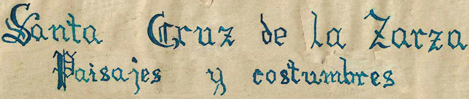 Santa Cruz de la Zarza
Paisajes y costumbres